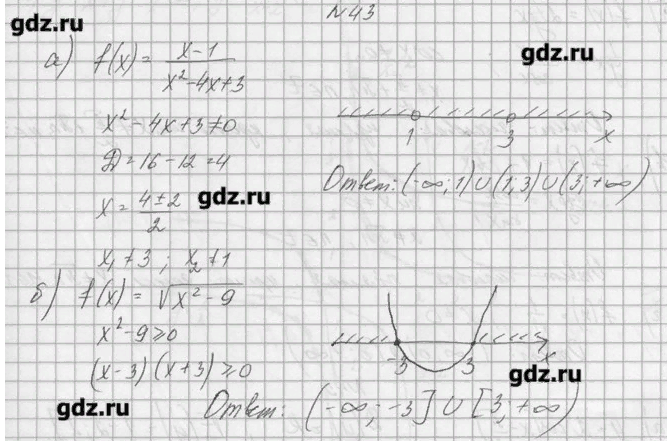 №43
gdz.ru
gdz.ru
а) f(x) = x-1 / x²-4x+3
x²-4x+3≠0
D=16-12=4
x = 4±2 / 2
gdz.ru
x₁≠3 ; x₂≠1
1 3 x
Ответ: (-∞; 1) ∪ (1; 3) ∪ (3; +∞)
б) f(x) = √x²-9
x²-9≥0
(x-3)(x+3)≥0
-3 3 x
gdz.ru
gdz.ru
Ответ: (-∞; -3] ∪ [3; +∞)